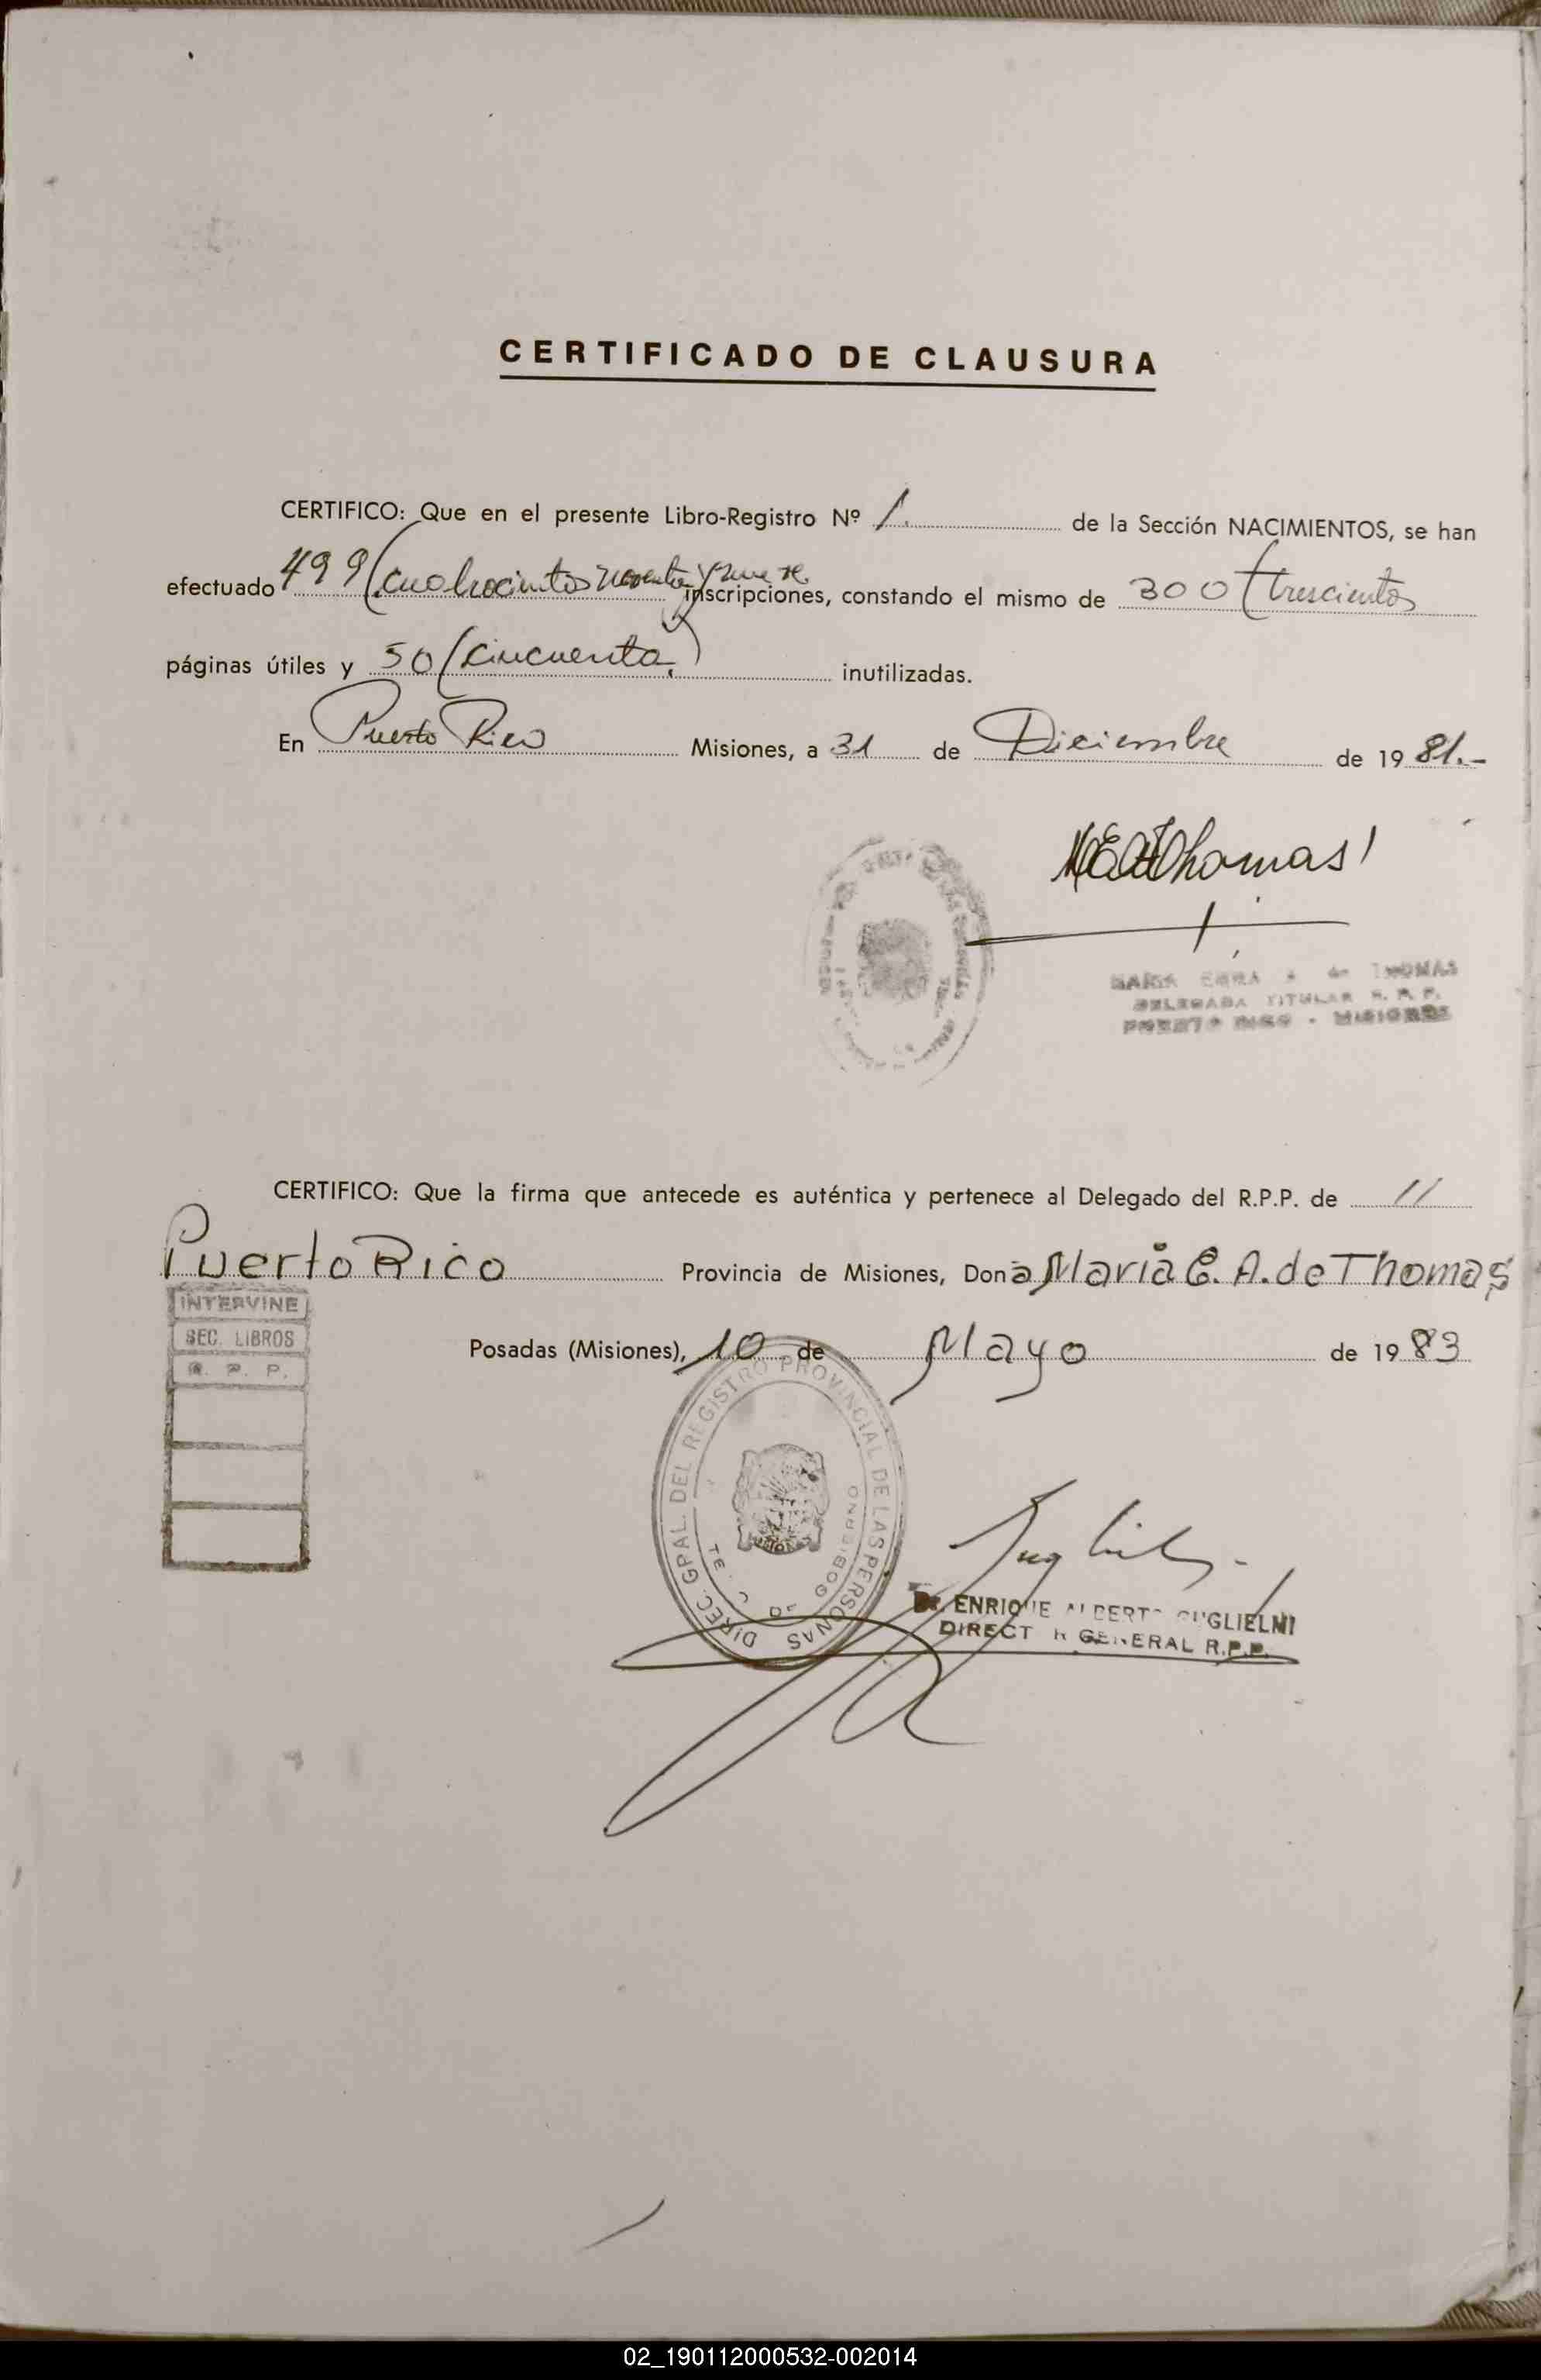 CERTIFICADO DE CLAUSURA
CERTIFICO: Que en el presente Libro-Registro Nº 1. de la Sección NACIMIENTOS, se han
efectuado 499 (cuatrocientos noventa y nueve) inscripciones, constando el mismo de 300 (trescientos
páginas útiles y 50 (cincuenta.) inutilizadas.
En Puerto Rico Misiones, a 31 de Diciembre de 1981.-
Thomas
THOMAS
DELEGADA TITULAR R. P. P.
PUERTO RICO - MISIONES
CERTIFICO: Que la firma que antecede es auténtica y pertenece al Delegado del R.P.P. de //
Puerto Rico Provincia de Misiones, Dona Maria E. A. de Thomas
INTERVINE
SEC. LIBROS
R. P. P.
Posadas (Misiones), 10 de Mayo de 1983
DIREC. GRAL. DEL REGISTRO PROVINCIAL DE LAS PERSONAS
DE GOBIERNO
Dr. ENRIQUE ALBERTO GUGLIELMI
DIRECTOR GENERAL R.P.P.
02_190112000532-002014